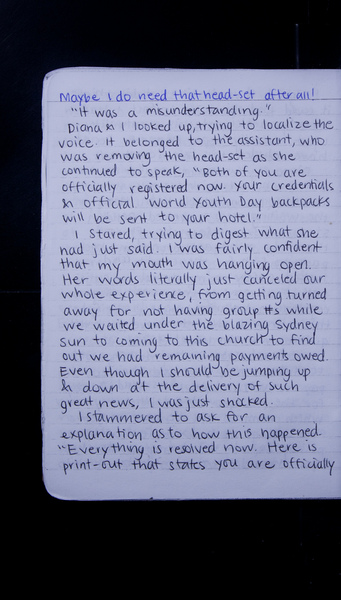 Maybe I do need that head-set after all!
"It was a misunderstanding."
Diana & I looked up, trying to localize the
voice. It belonged to the assistant, who
was removing the head-set as she
continued to speak, "Both of you are
officially registered now. Your credentials
& official World Youth Day backpacks
will be sent to your hotel."
I stared, trying to digest what she
had just said. I was fairly confident
that my mouth was hanging open.
Her words literally just canceled our
whole experience, from getting turned
away for not having group #s while
we waited under the blazing Sydney
sun to coming to this church to find
out we had remaining payments owed.
Even though I should be jumping up
& down at the delivery of such
great news, I was just shocked.
I stammered to ask for an
explanation as to how this happened.
"Everything is resolved now. Here is
print-out that states you are officially